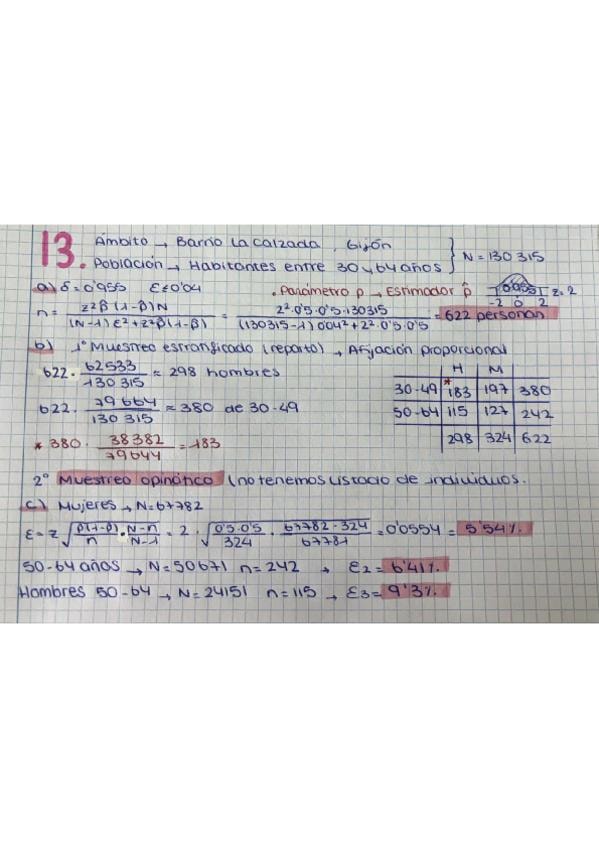 13. Ámbito → Barrio La Calzada, Gijón
Población → Habitantes entre 30 y 64 años } N = 130 315
a) δ = 0'955 ε ≠ 0'04 • Parámetro p → Estimador p̂ 0'955 -2 0 2 z = 2
n = z² p̂ (1-p̂) N / (N-1) ε² + z² p̂ (1-p̂) = 2² · 0'5 · 0'5 · 130315 / (130315-1) 0'04² + 2² · 0'5 · 0'5 = 622 personas
b) 1º Muestreo estratificado (reparto) → Afijación proporcional
622 · 62533 / 130 315 ≈ 298 hombres
H M
622 · 79664 / 130 315 ≈ 380 de 30-49
30-49 * 183 197 380
50-64 115 127 242
298 324 622
* 380 · 38382 / 79644 = 183
2º Muestreo opinático (no tenemos listado de individuos.
c) Mujeres → N = 67782
ε = z √ p̂(1-p̂) / n · N-n / N-1 = 2 · √ 0'5 · 0'5 / 324 · 67782 - 324 / 67781 = 0'0554 = 5'54%.
50-64 años → N = 50671 n = 242 → ε2 = 6'41%.
Hombres 50-64 → N = 24151 n = 115 → ε3 = 9'3%.